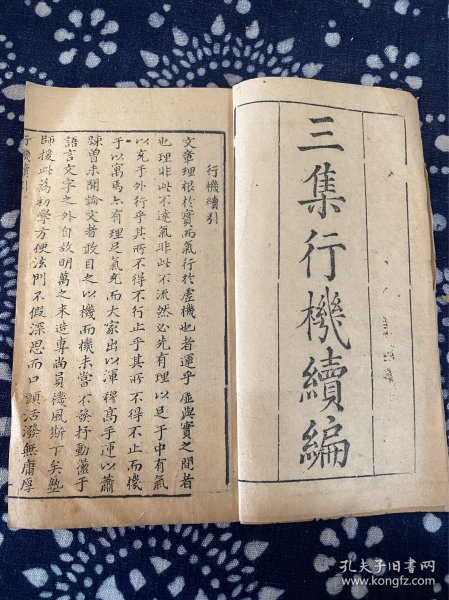 三集行機續編
行機續引
文章理根於實而氣行於虛機也者運乎虛與實之間者
也理非此不達氣非此不流然必先有理以足于中有氣
以充于外行乎其所不得不行止乎其所不得不止而機
于以寓焉亦有理足氣充而大家出以渾穆高手運以蕭
疎曾未聞論文者敢目之以機而機未嘗不發抒動盪于
語言文字之外自故明萬之末造專尚員機風斯下矣塾
師援此為初學方便法門不假深思而口頭活潑無庸厚
行機續引
孔夫子旧书网
www.kongfz.com